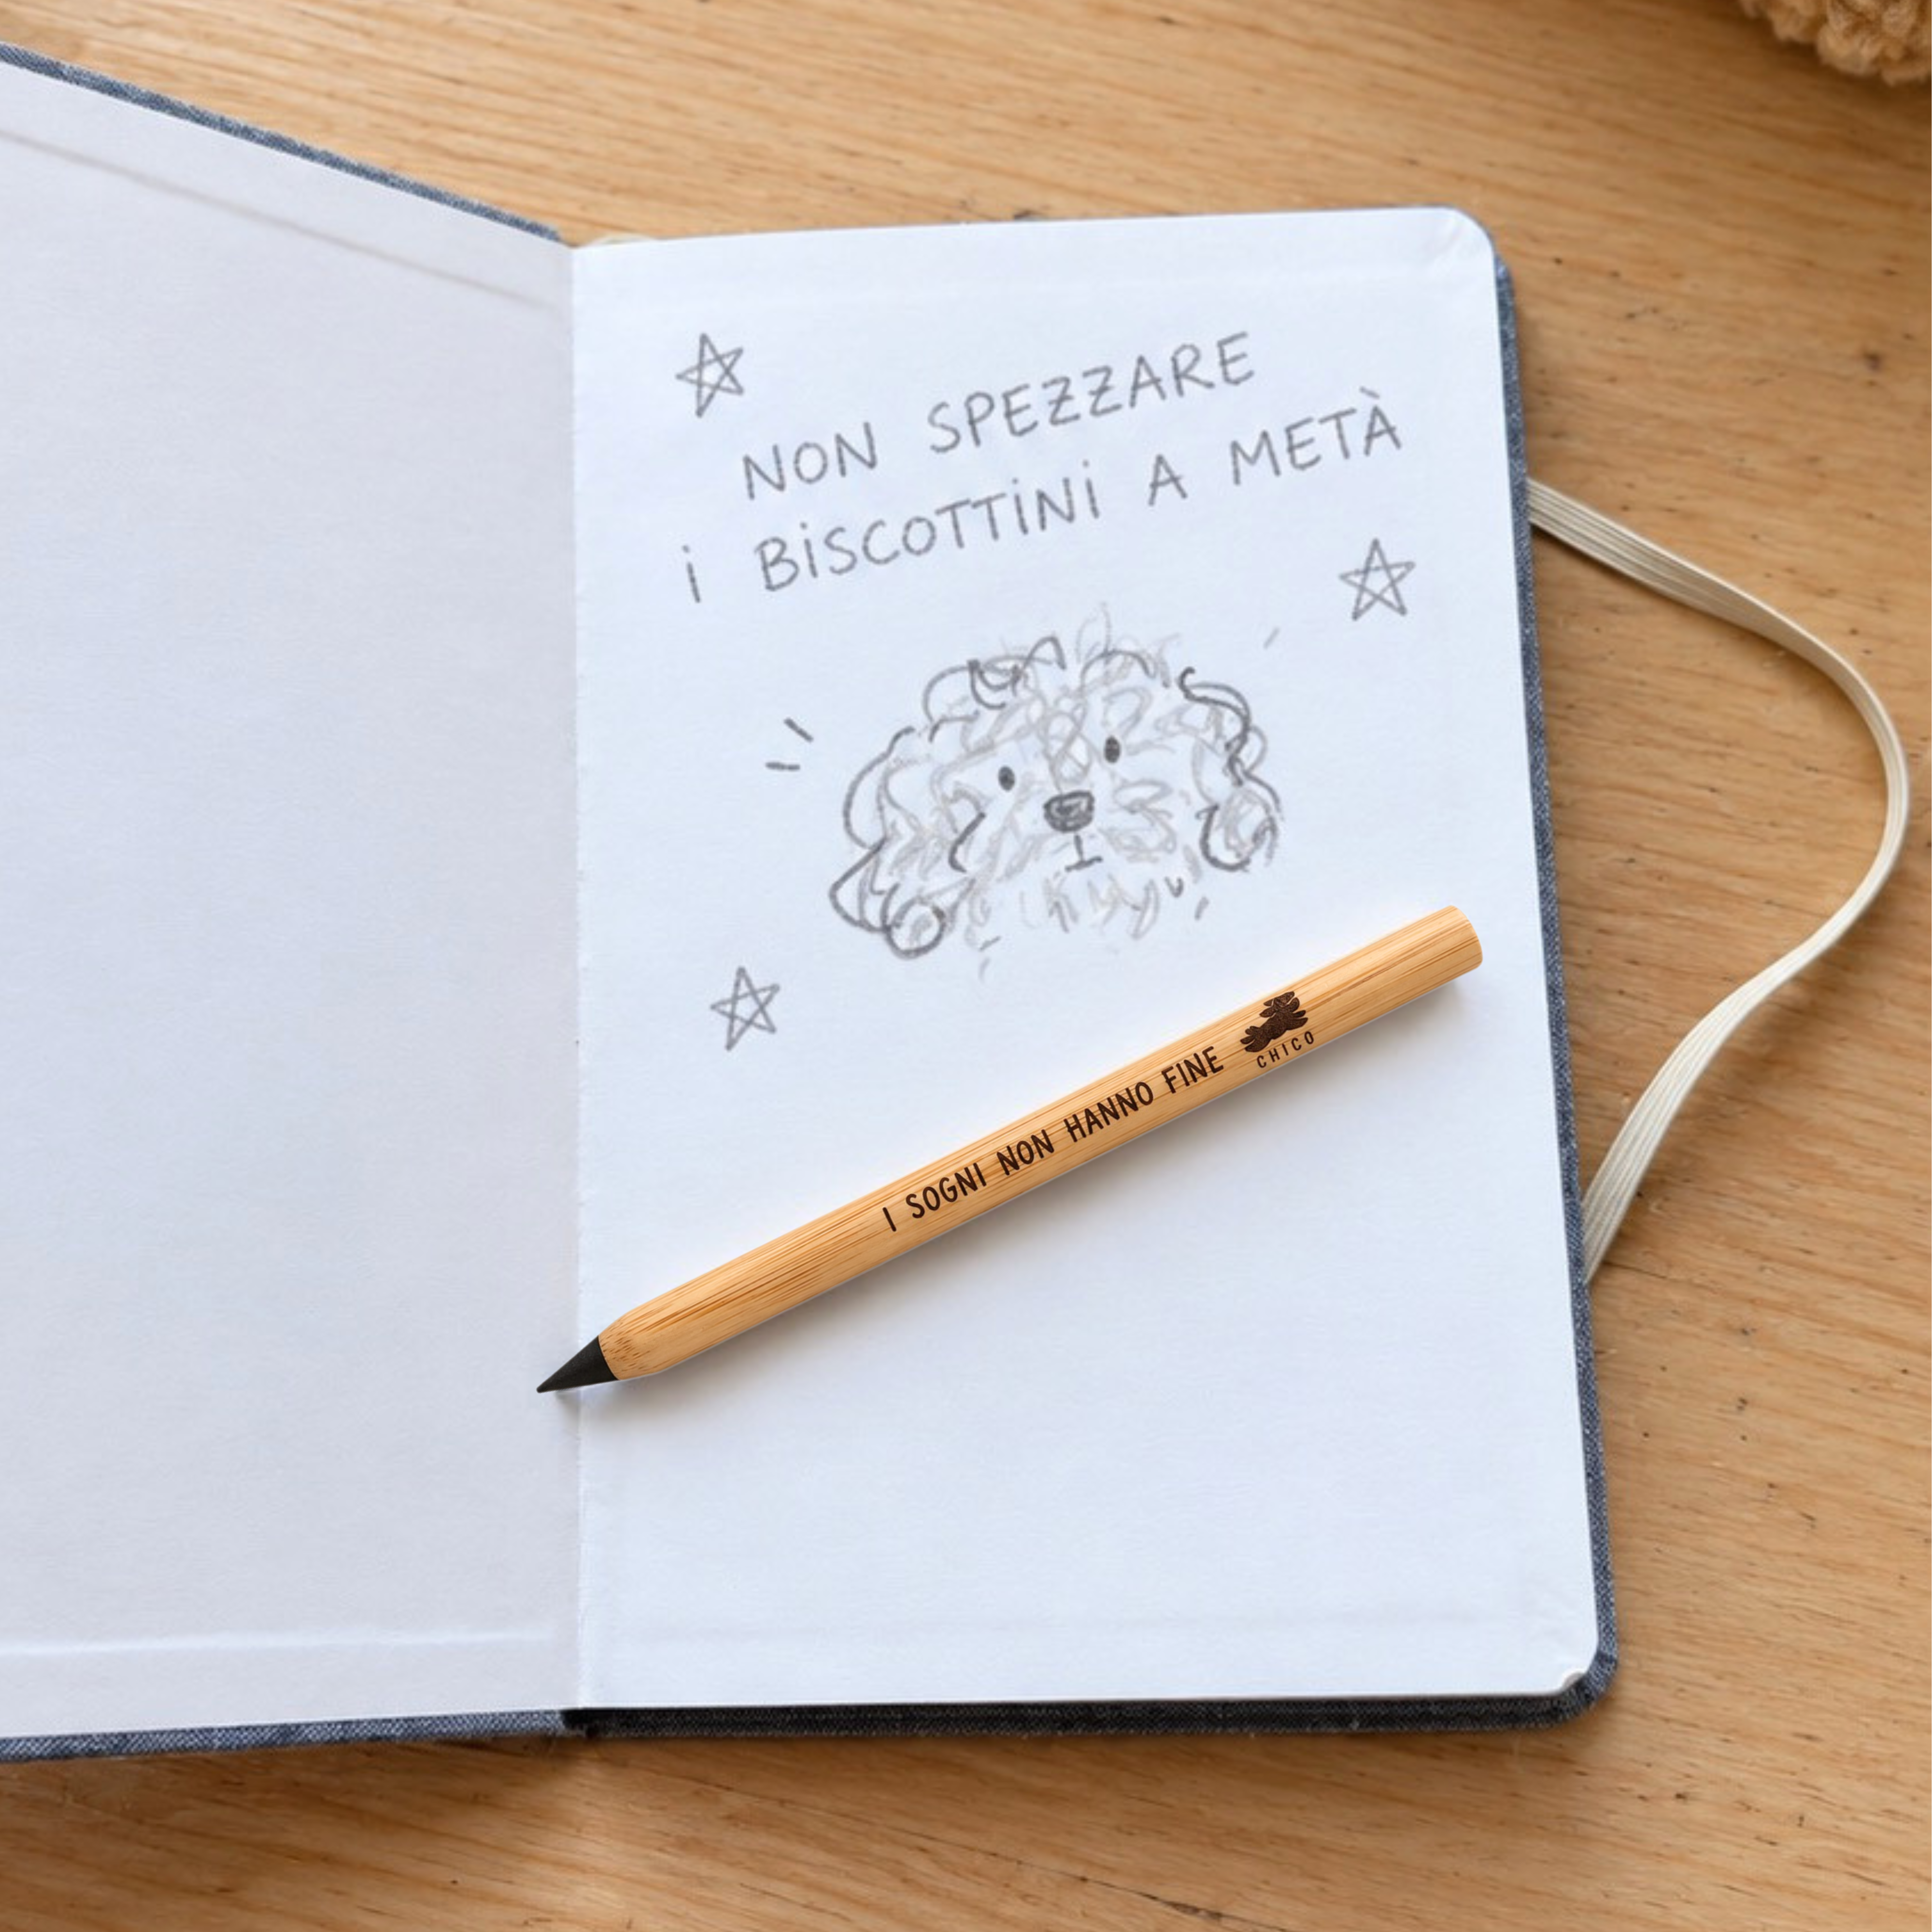 NON SPEZZARE
i BiSCOTTiNi A METÀ
I SOGNI NON HANNO FINE
CHICO